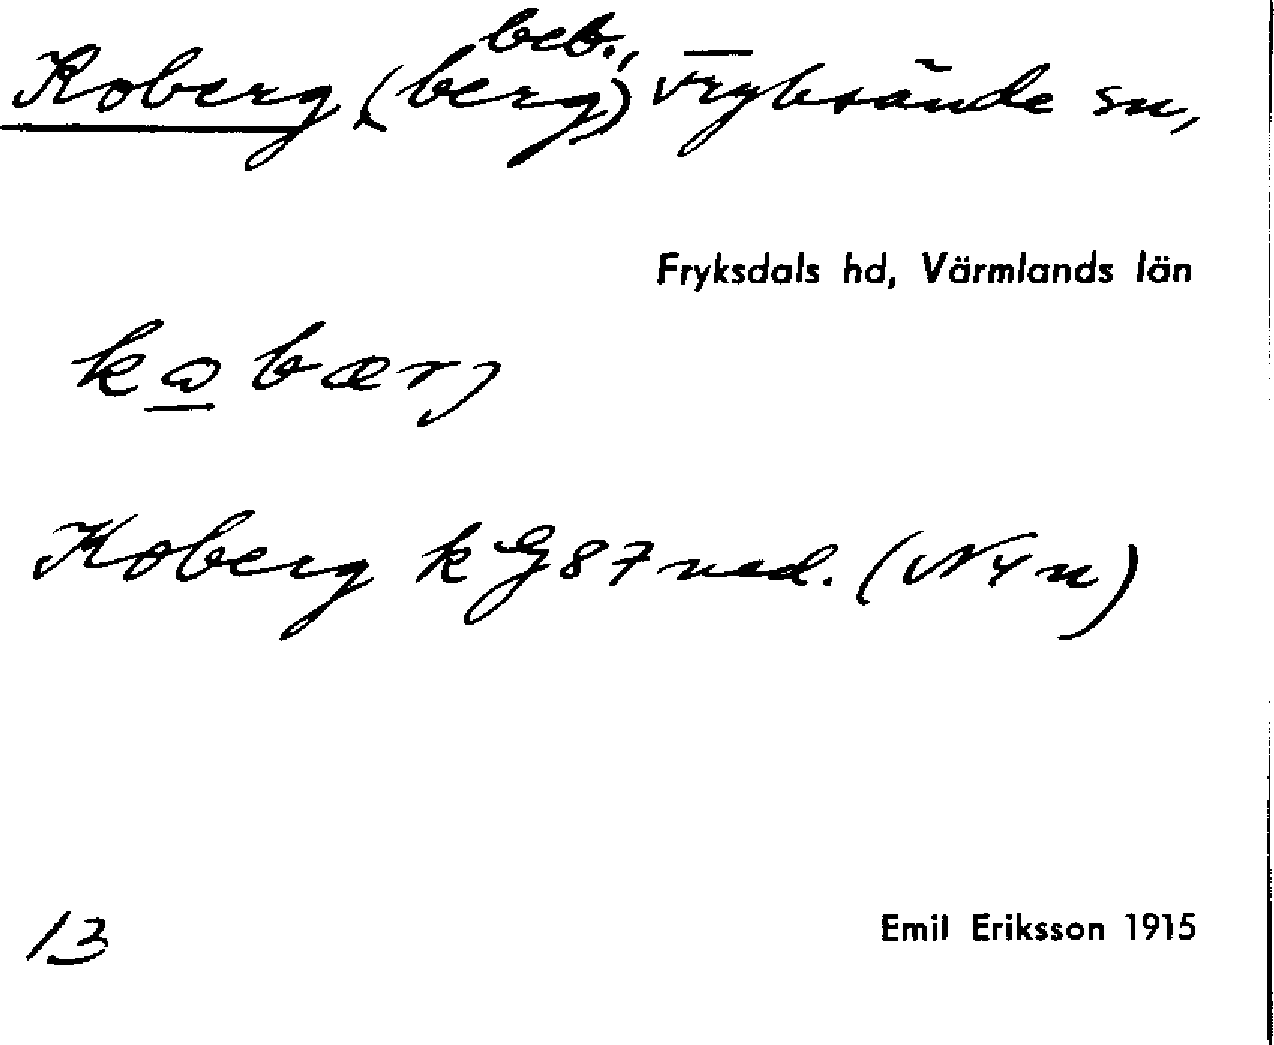 Koberg (beb., berg) Fryksände sn,
Fryksdals hd, Värmlands län
kɷbærj
Koberg k G 87 ned. (N Y n)
13
Emil Eriksson 1915